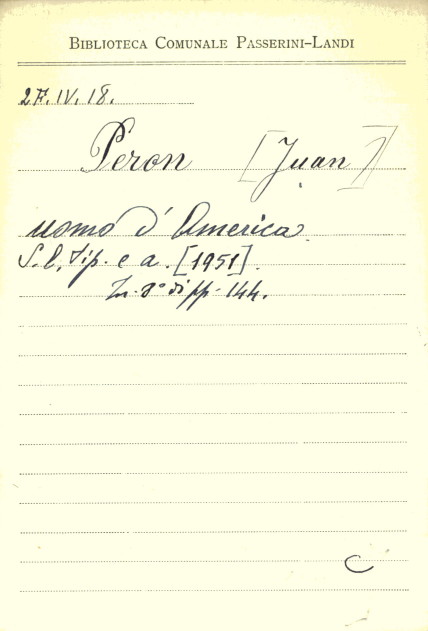 BIBLIOTECA COMUNALE PASSERINI-LANDI
2F. IV. 18.
Peron [Juan]
uomo d'America.
S. l. tip. e a. [1951].
In-8° di pp. 144.
C